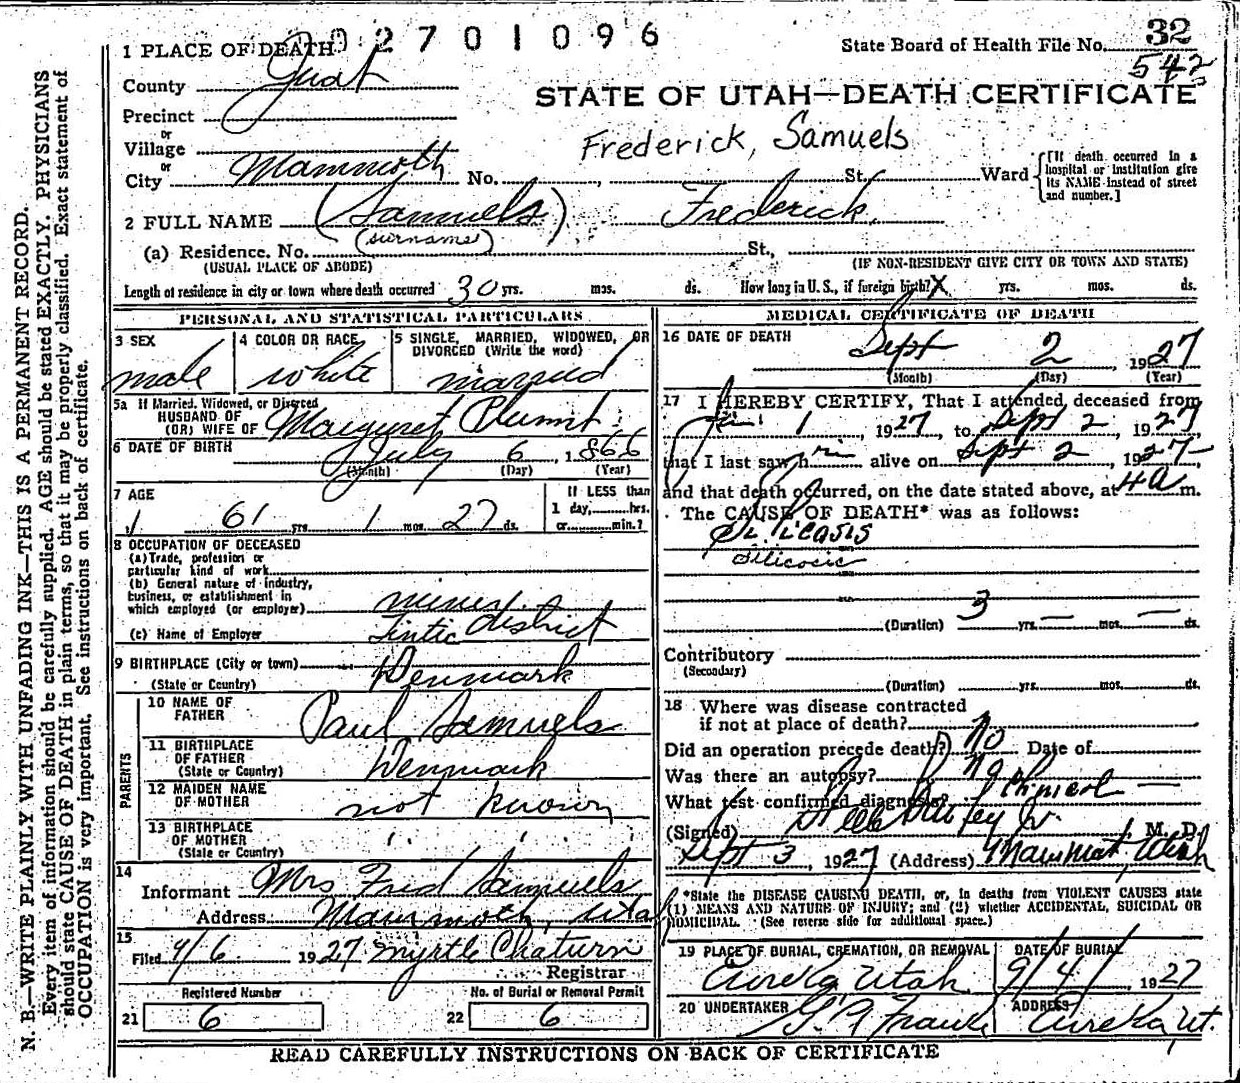 2701096
1 PLACE OF DEATH
State Board of Health File No. 32
542
County Juab
STATE OF UTAH—DEATH CERTIFICATE
Precinct
or
Village
Frederick, Samuels
or
City Mammoth No. , St. Ward
[If death occurred in a hospital or institution give its NAME instead of street and number.]
2 FULL NAME (Samuels) Frederick.
(surname)
(a) Residence. No. St.,
(USUAL PLACE OF ABODE) (IF NON-RESIDENT GIVE CITY OR TOWN AND STATE)
Length of residence in city or town where death occurred 30 yrs. mos. ds. How long in U. S., if foreign birth? X yrs. mos. ds.
PERSONAL AND STATISTICAL PARTICULARS
3 SEX 4 COLOR OR RACE 5 SINGLE, MARRIED, WIDOWED, OR
DIVORCED (Write the word)
male white married
5a If Married, Widowed, or Divorced
HUSBAND OF
(OR) WIFE OF Margaret
6 DATE OF BIRTH July 6, 1866
(Month) (Day) (Year)
7 AGE If LESS than
1 day, hrs.
61 yrs. 1 mos. 27 ds. or min.?
8 OCCUPATION OF DECEASED
(a) Trade, profession or
particular kind of work
(b) General nature of industry,
business, or establishment in
which employed (or employer) miner.
(c) Name of Employer Tintic district
9 BIRTHPLACE (City or town)
(State or Country) Denmark
PARENTS
10 NAME OF
FATHER Paul Samuels
11 BIRTHPLACE
OF FATHER Denmark
(State or Country)
12 MAIDEN NAME
OF MOTHER not known
13 BIRTHPLACE
OF MOTHER " "
(State or Country)
14
Informant Mrs Fred Samuels
Address Mammoth, Utah
15
Filed 9/6 1927 Myrtle
Registrar
Registered Number No. of Burial or Removal Permit
21 6 22 6
MEDICAL CERTIFICATE OF DEATH
16 DATE OF DEATH Sept 2 1927
(Month) (Day) (Year)
17 I HEREBY CERTIFY, That I attended deceased from
1 1927, to Sept 2, 1927
that I last saw him alive on Sept 2, 1927
and that death occurred, on the date stated above, at 4 a m.
The CAUSE OF DEATH* was as follows:
Silicosis
Silicosis
(Duration) 3 yrs. — mos. — ds.
Contributory
(Secondary)
(Duration) yrs. mos. ds.
18 Where was disease contracted
if not at place of death?
Did an operation precede death? No Date of
Was there an autopsy? no
What test confirmed diagnosis? —
(Signed) Steele Jr. M. D.
Sept 3, 1927 (Address) Mammoth, Utah
*State the DISEASE CAUSING DEATH, or, in deaths from VIOLENT CAUSES state
(1) MEANS AND NATURE OF INJURY; and (2) whether ACCIDENTAL, SUICIDAL OR
HOMICIDAL. (See reverse side for additional space.)
19 PLACE OF BURIAL, CREMATION, OR REMOVAL DATE OF BURIAL
Eureka Utah 9/4/ 1927
20 UNDERTAKER ADDRESS
Eureka, Ut.
READ CAREFULLY INSTRUCTIONS ON BACK OF CERTIFICATE
N. B.—WRITE PLAINLY WITH UNFADING INK—THIS IS A PERMANENT RECORD.
Every item of information should be carefully supplied. AGE should be stated EXACTLY. PHYSICIANS
should state CAUSE OF DEATH in plain terms, so that it may be properly classified. Exact statement of
OCCUPATION is very important. See instructions on back of certificate.